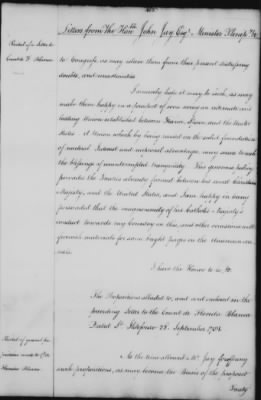 Letters from The Honble John Jay Esqr. Minister Plenipo &c
Recital of a letter to
Count de F. Blanca
to Congress, as may relieve them from their present distressing
doubts, and uncertainties.
I sincerely hope it may be such, as may
make them happy in a prospect of soon seeing an intimate and
lasting Union established between France, Spain and the United
States. A Union which by being raised on the solid foundation
of mutual Interest and reciprocal advantage, may secure to each
the blessings of uninterrupted tranquility. This generous policy
pervades the Treaties already formed between his most Christian
Majesty, and the United States, and I am happy in being
persuaded that the magnanimity of his Catholic Majesty's
conduct towards my Country on this, and other occasions will
furnish materials for some bright pages in the American
I have the Honor to be, &c.
The Propositions alluded to, and and enclosed in the
preceding letter to the Count de Florida Blanca
Dated St. Ildefonso 22. September 1781.
Recital of general
made to Ct. de
Florida Blanca.
As the time allowed Mr. Jay for offering
such propositions, as may become the Basis of the proposed
Treaty